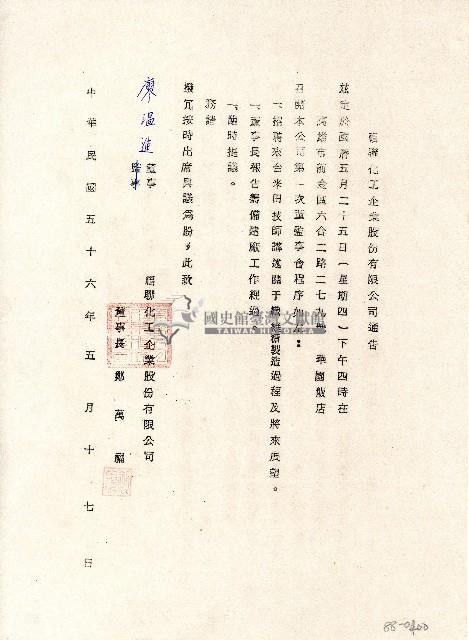 福聯化工企業股份有限公司通告
茲定於政府五月二十五日(星期四)下午四時在
高雄市前金區六合二路二七九號 華園飯店
召開本公司第一次董監事會程序如左:
一、招聘來台來田技師講述關于製造過程及將來展望。
一、董事長報告籌備建廠工作經過。
一、臨時提議。
務請
撥冗按時出席與議為勝此致
廖温進 董事
監事
福聯化工企業股份有限公司
董事長 鄭萬福
中華民國五十六年五月十七日
國史館臺灣文獻館
TAIWAN HISTORICA